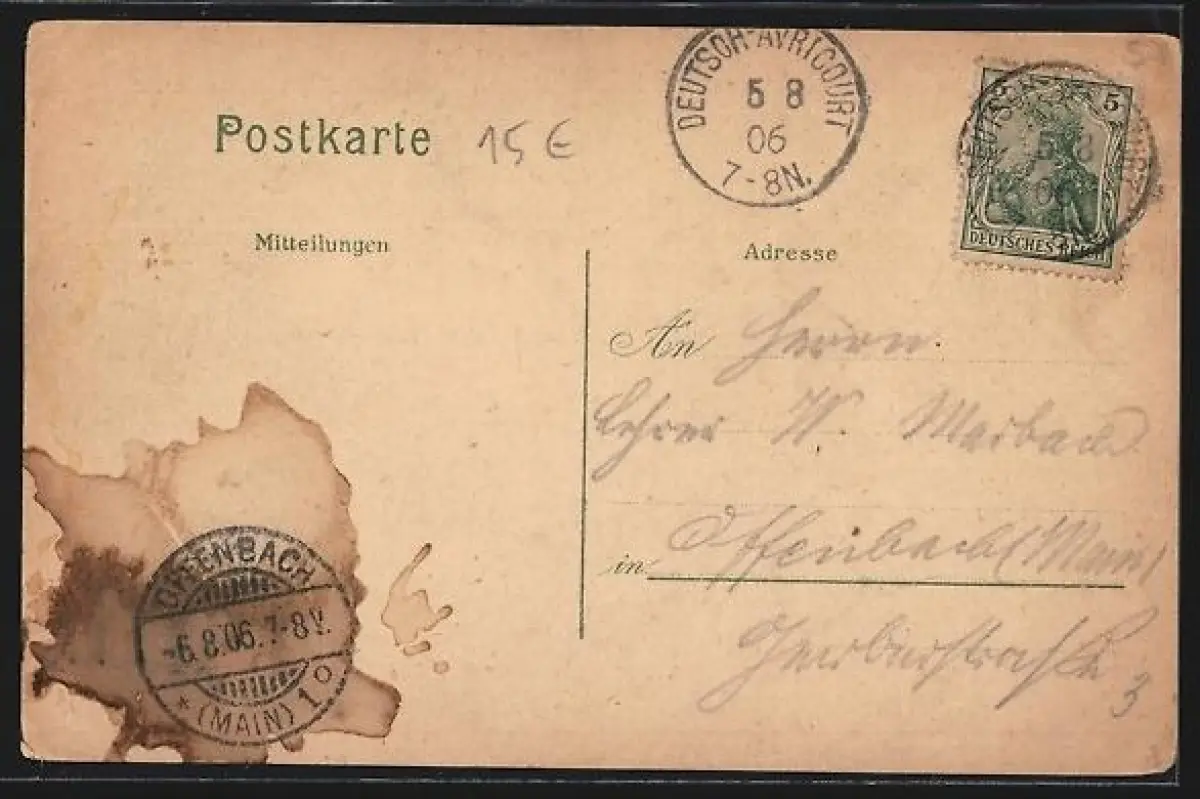 DEUTSCH-AVRICOURT
5 8
06
7-8N.
5
DEUTSCHES REICH
Postkarte
15 €
Mitteilungen
Adresse
An Herrn
Lehrer W. Marbach
in Offenbach (Main)
3
OFFENBACH
-6.8.06.7-8V.
* (MAIN) 1 o